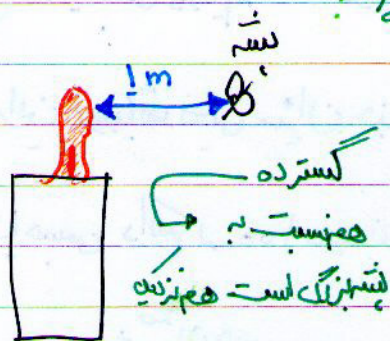 پشه
1 m
گسترده
هم نسبت به
پشه بزرگ است هم نزدیک